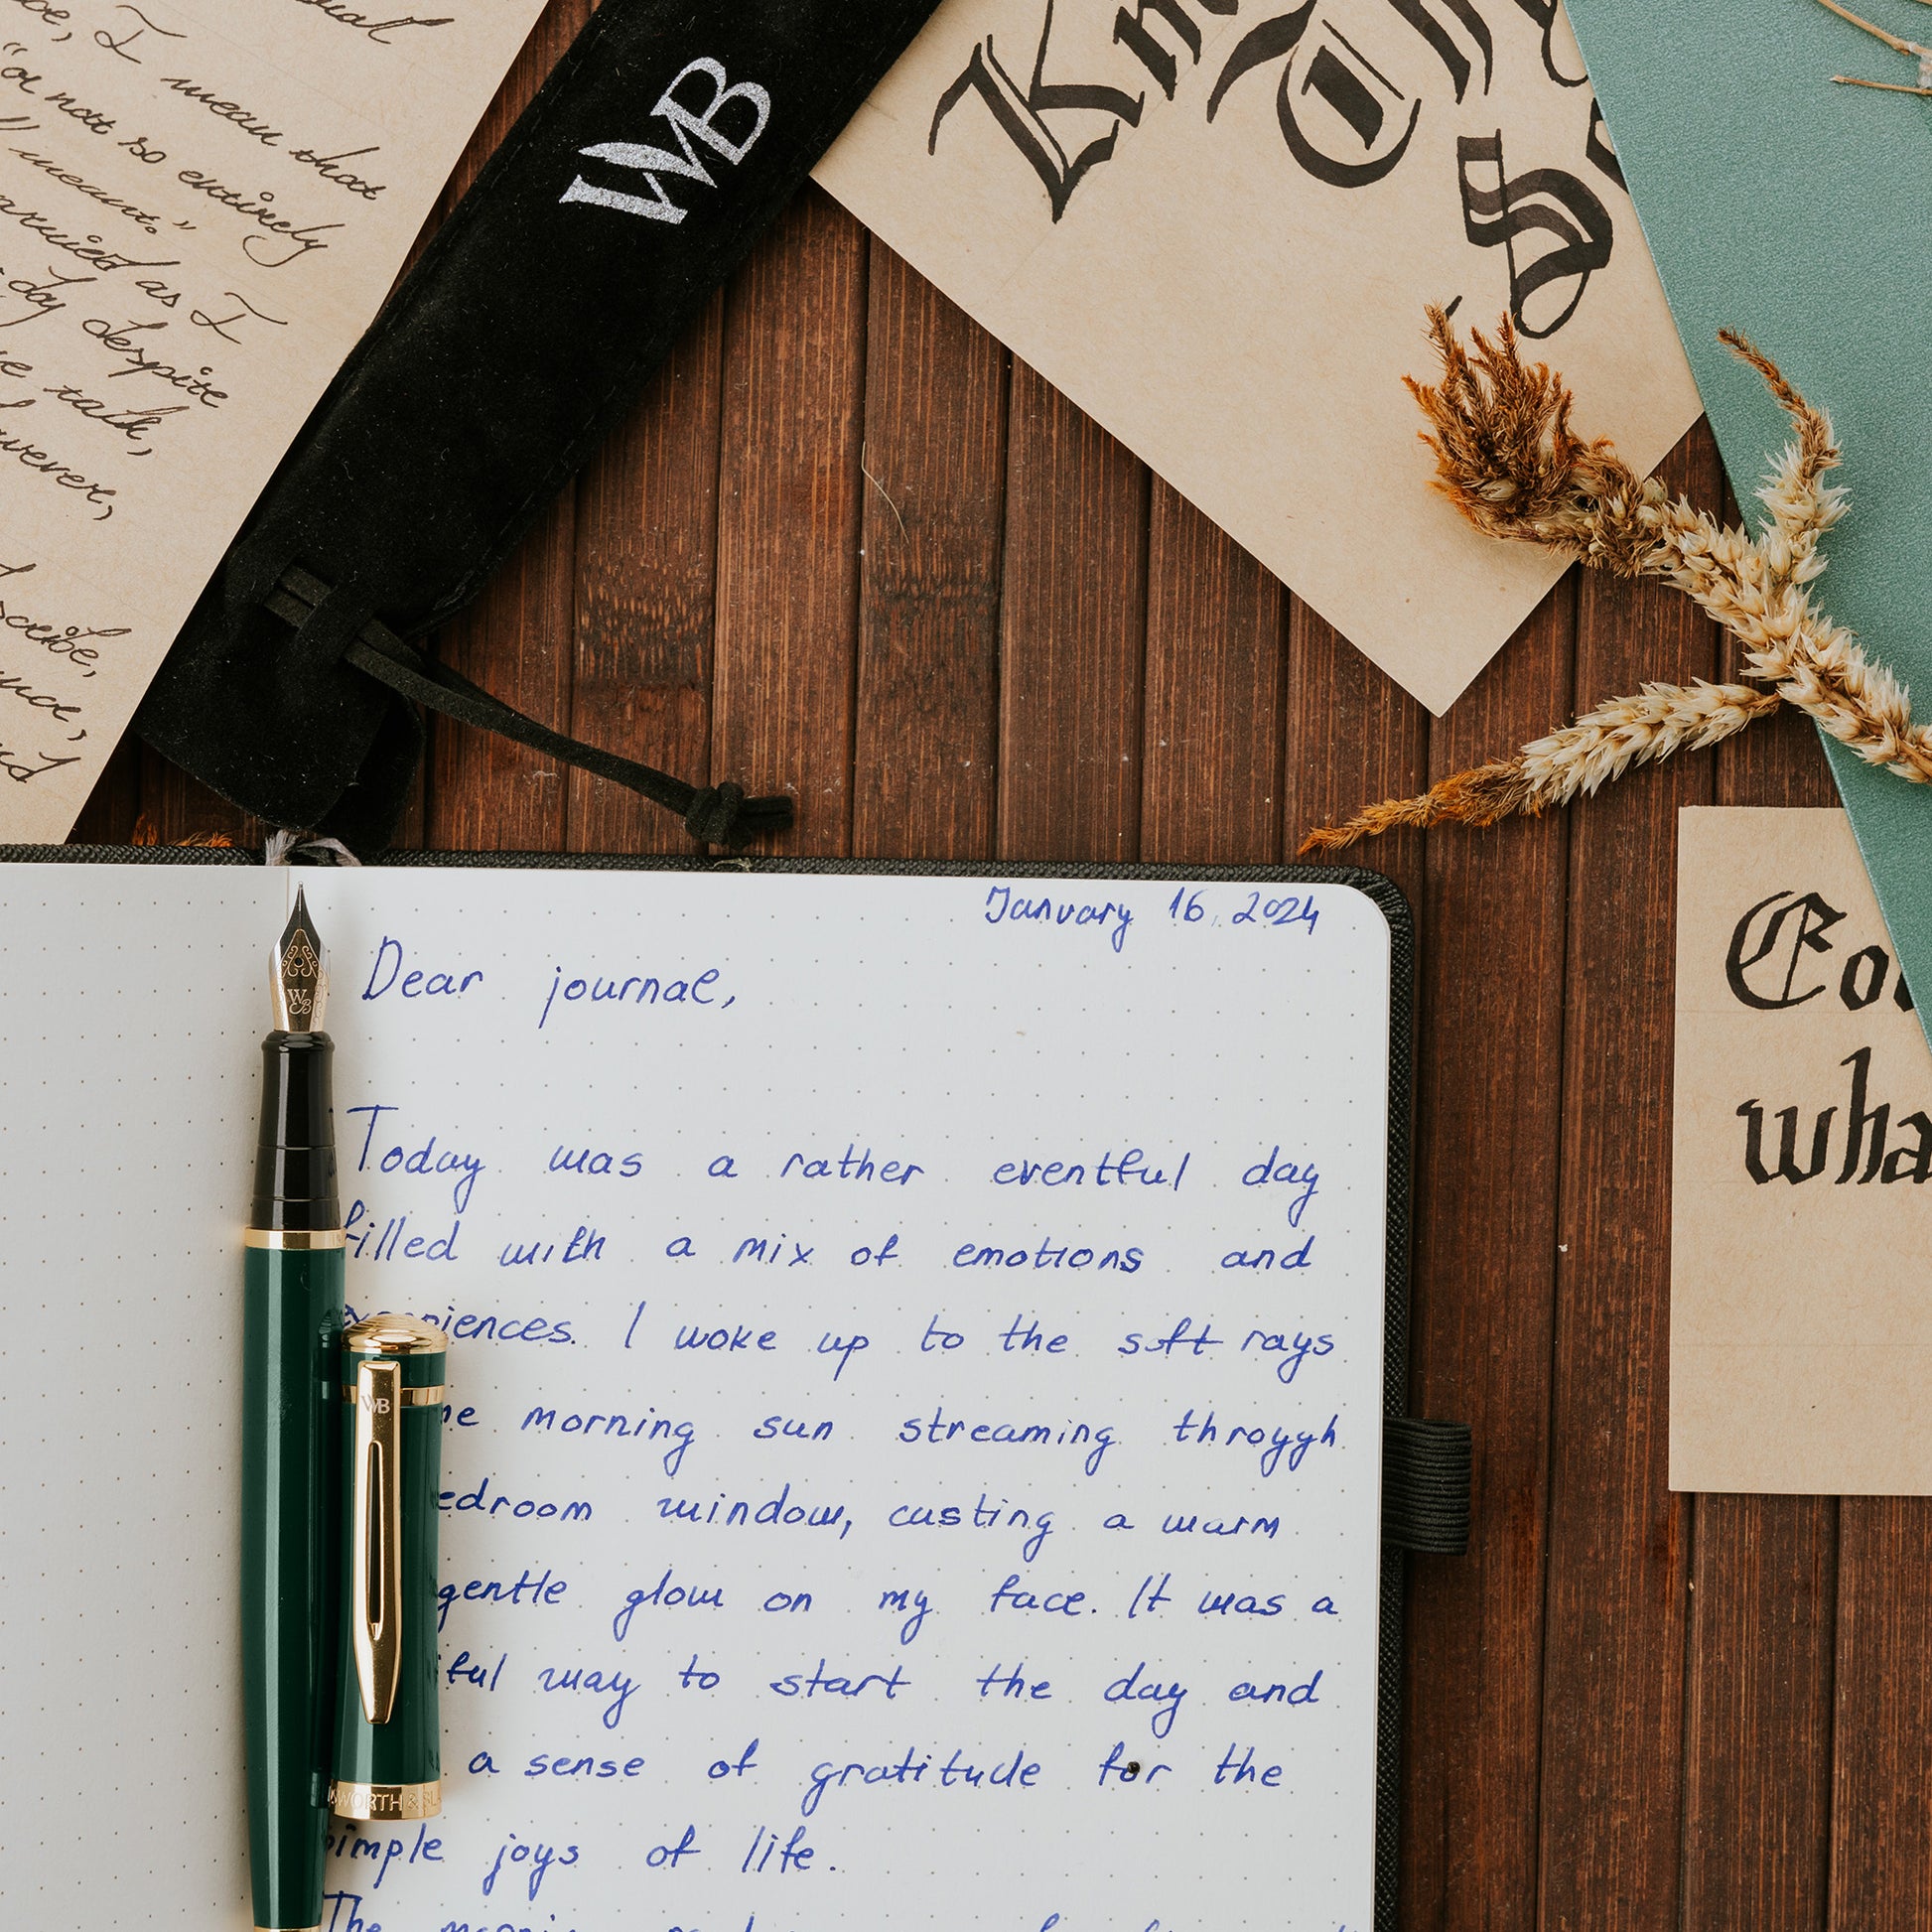 I mean that
not so entirely
meant."
as I
day despite
talk,
WB
January 16, 2024
Dear journal,
Today was a rather eventful day
filled with a mix of emotions and
experiences. I woke up to the soft rays
morning sun streaming throygh
window, casting a warm
gentle glow on my face. It was a
way to start the day and
a sense of gratitude for the
simple joys of life.
The
WB
WB
wha